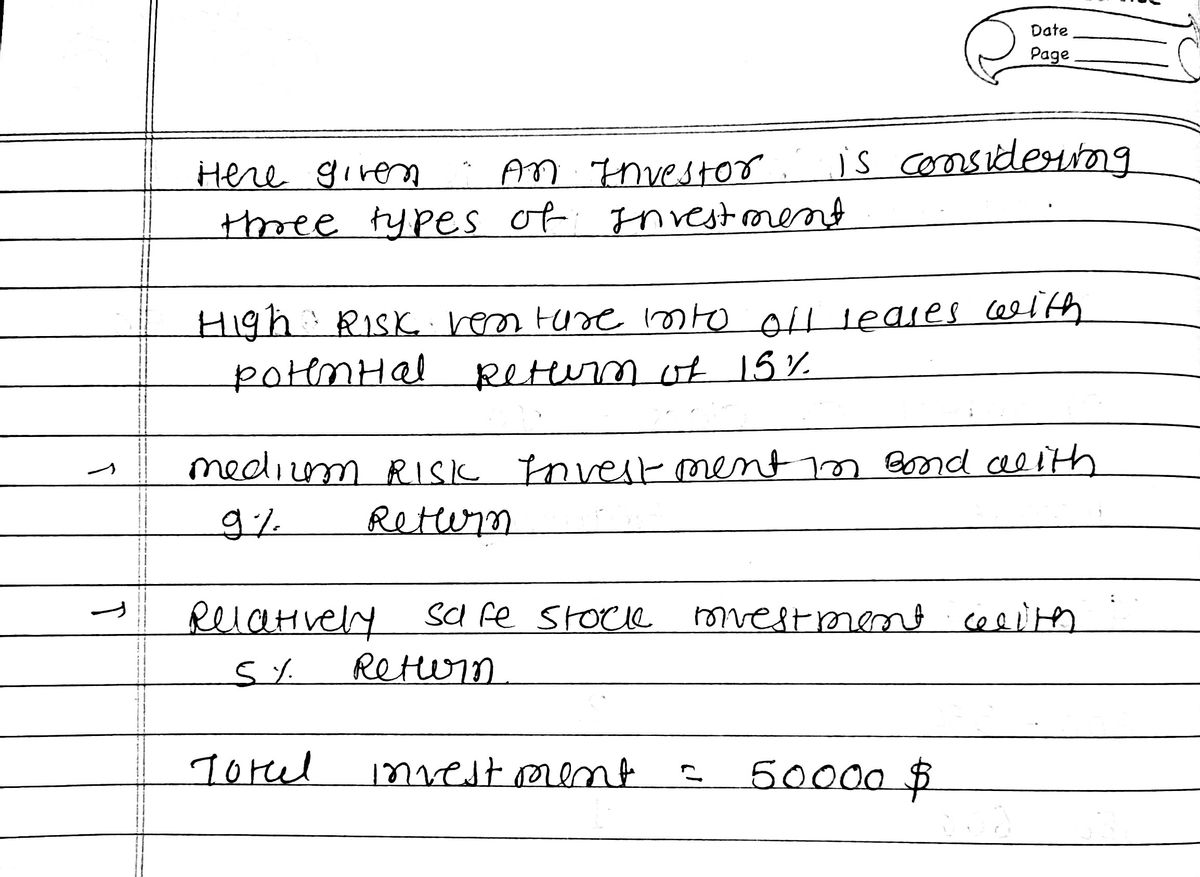 Date
Page
Here given : An Investor is considering
three types of Investment
High Risk venture into oil leases with
potential Return of 15%
→ medium Risk Investment in Bond with
9% Return
→ Relatively safe stock investment with
5% Return.
Total investment = 50000 $